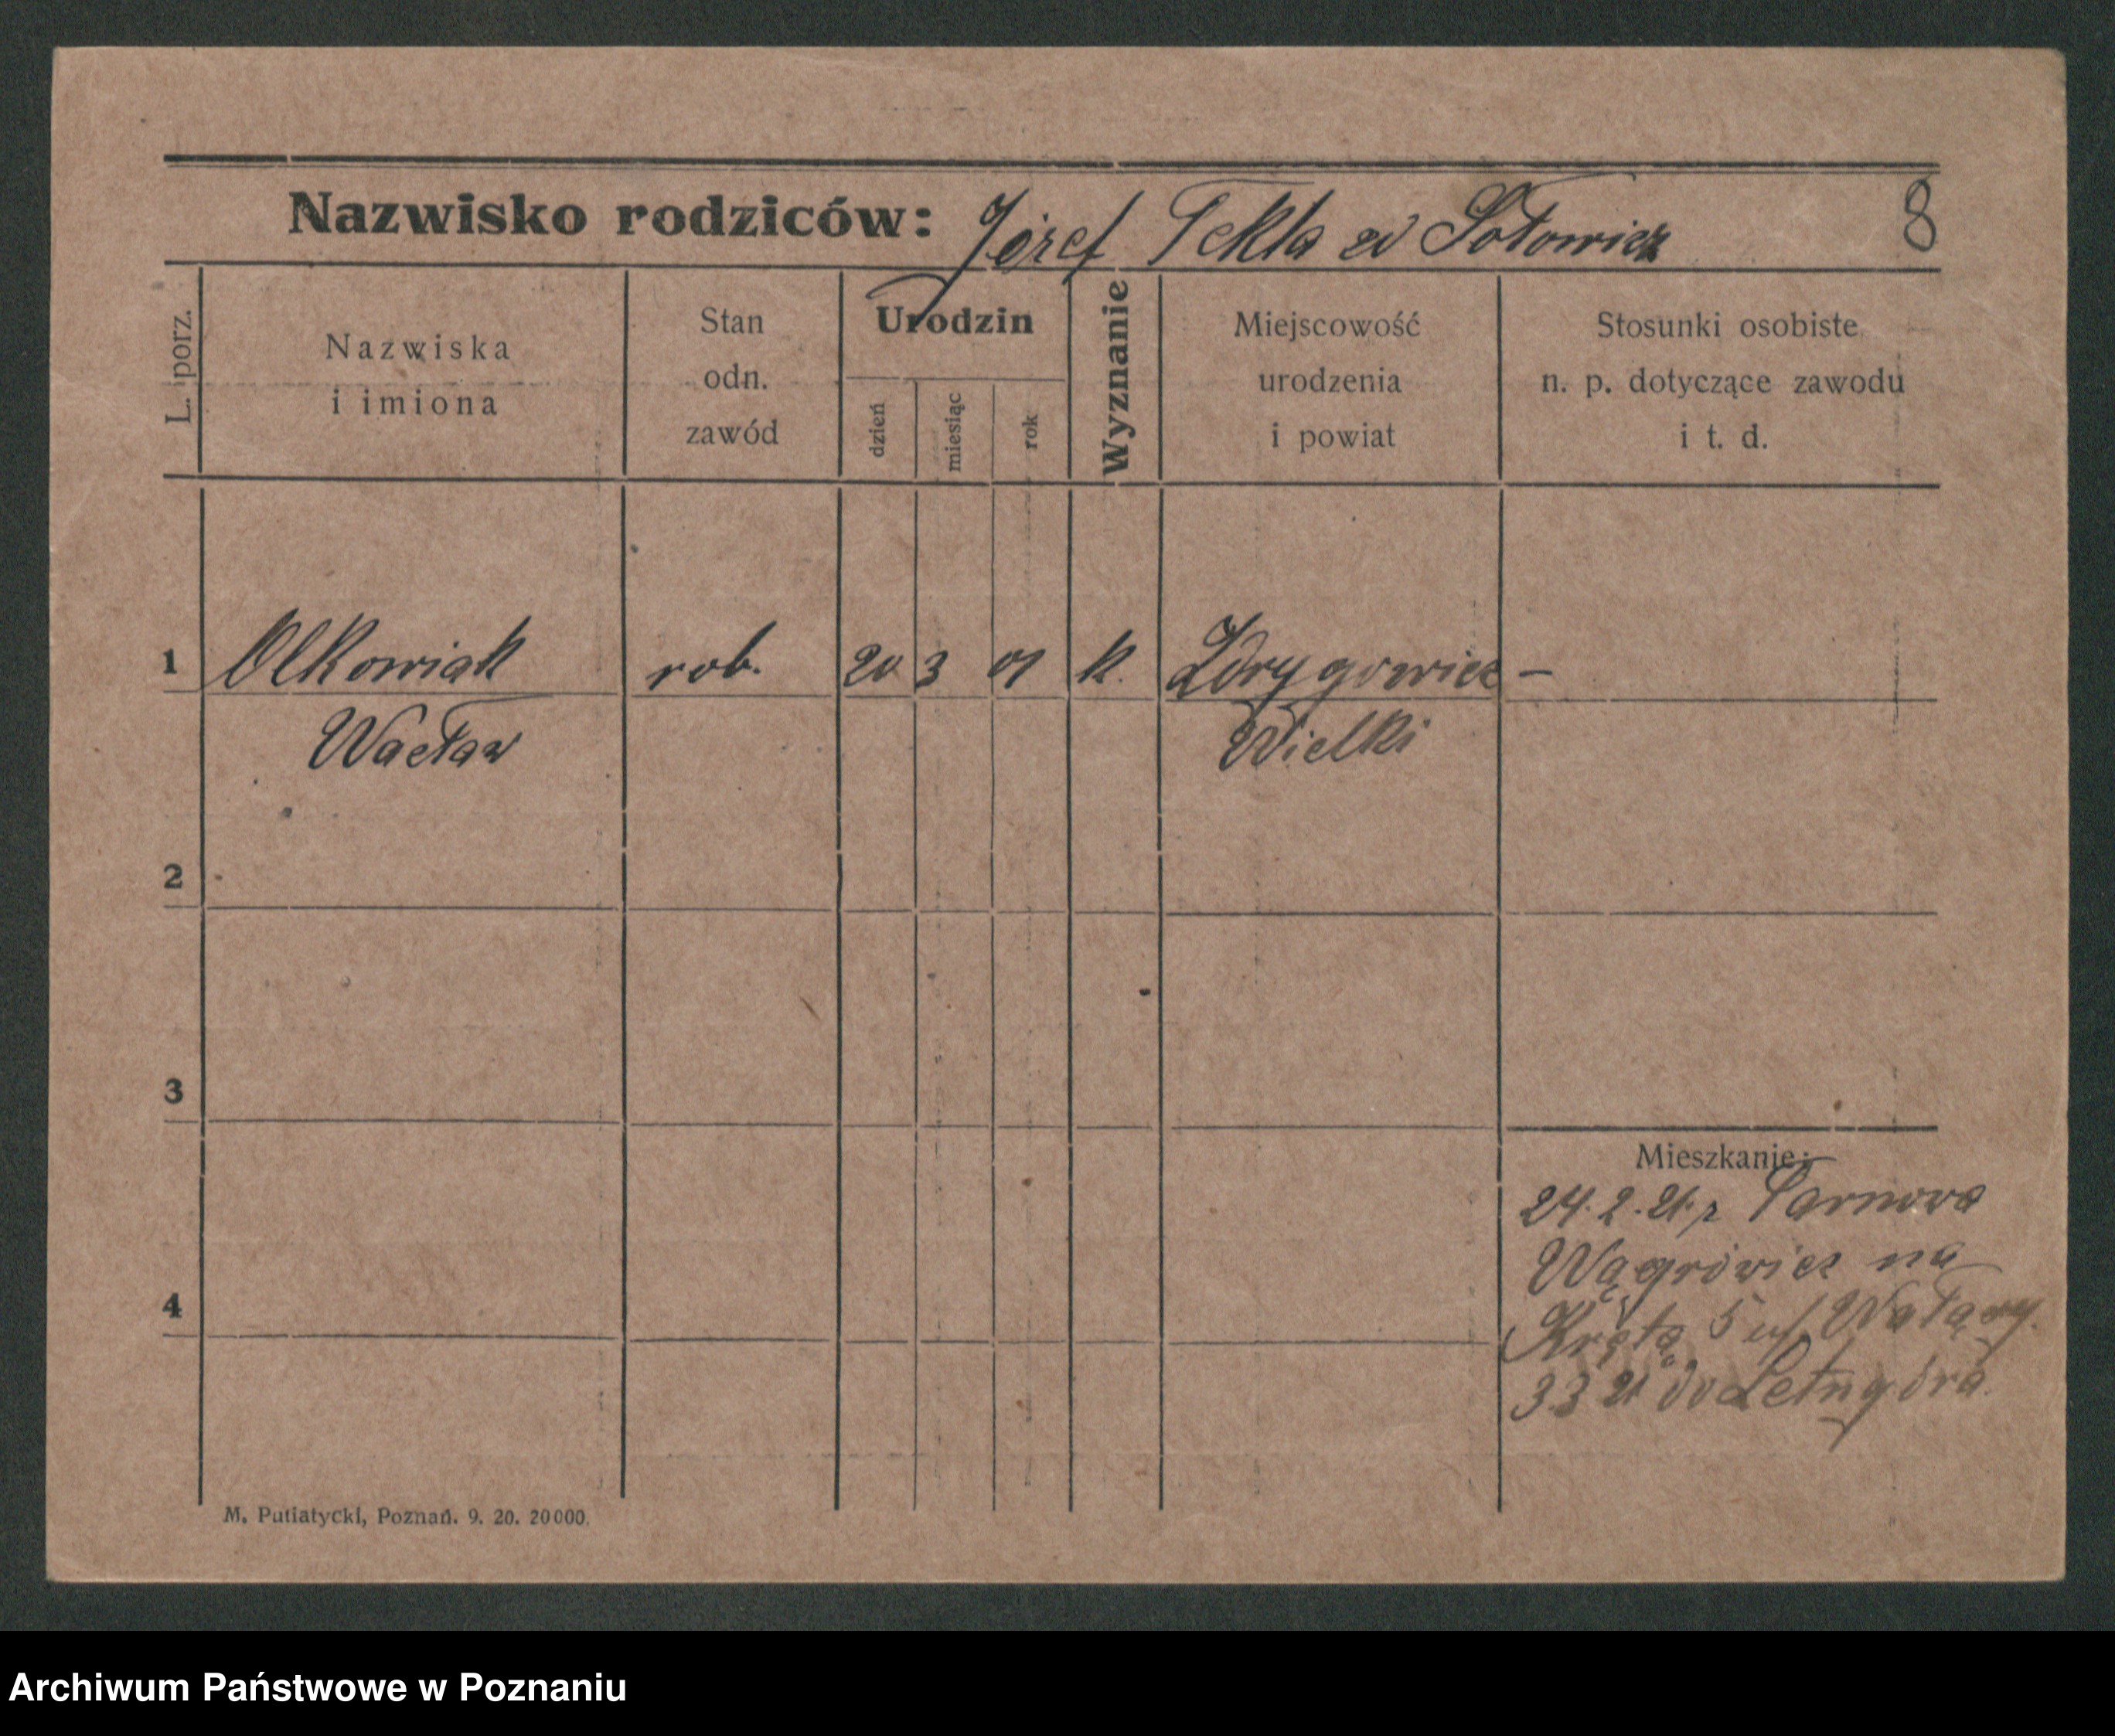 Nazwisko rodziców: Józef Tekla zd Sołowicz 8
L. porz.
Nazwiska
i imiona
Stan
odn.
zawód
Urodzin
dzień
miesiąc
rok
Wyznanie
Miejscowość
urodzenia
i powiat
Stosunki osobiste
n. p. dotyczące zawodu
i t. d.
1 Olkowiak rob. 20 3 01 k. –
Wacław Wielki
2
3
4
Mieszkanie:
24.2.21. z Tarnowa
Wągrówiec na
Krętą 5
33 21 do Letnygóra
M. Putiatycki, Poznań. 9. 20. 20000.
Archiwum Państwowe w Poznaniu